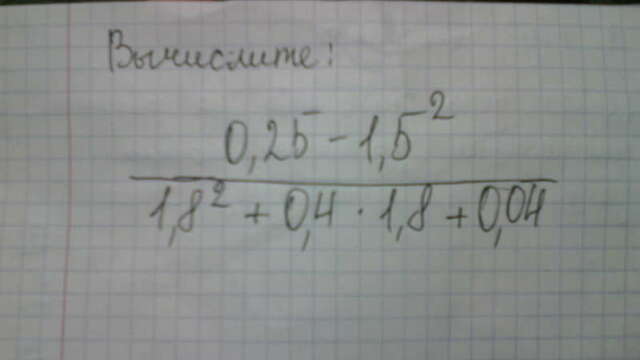 Вычислите:
0,25 - 1,5²
1,8² + 0,4 · 1,8 + 0,04